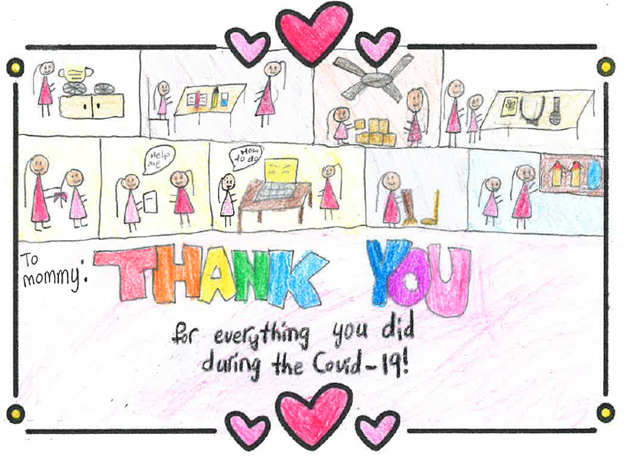 Help
me
How
to do
To
mommy:
THANK YOU
for everything you did
during the Covid-19!